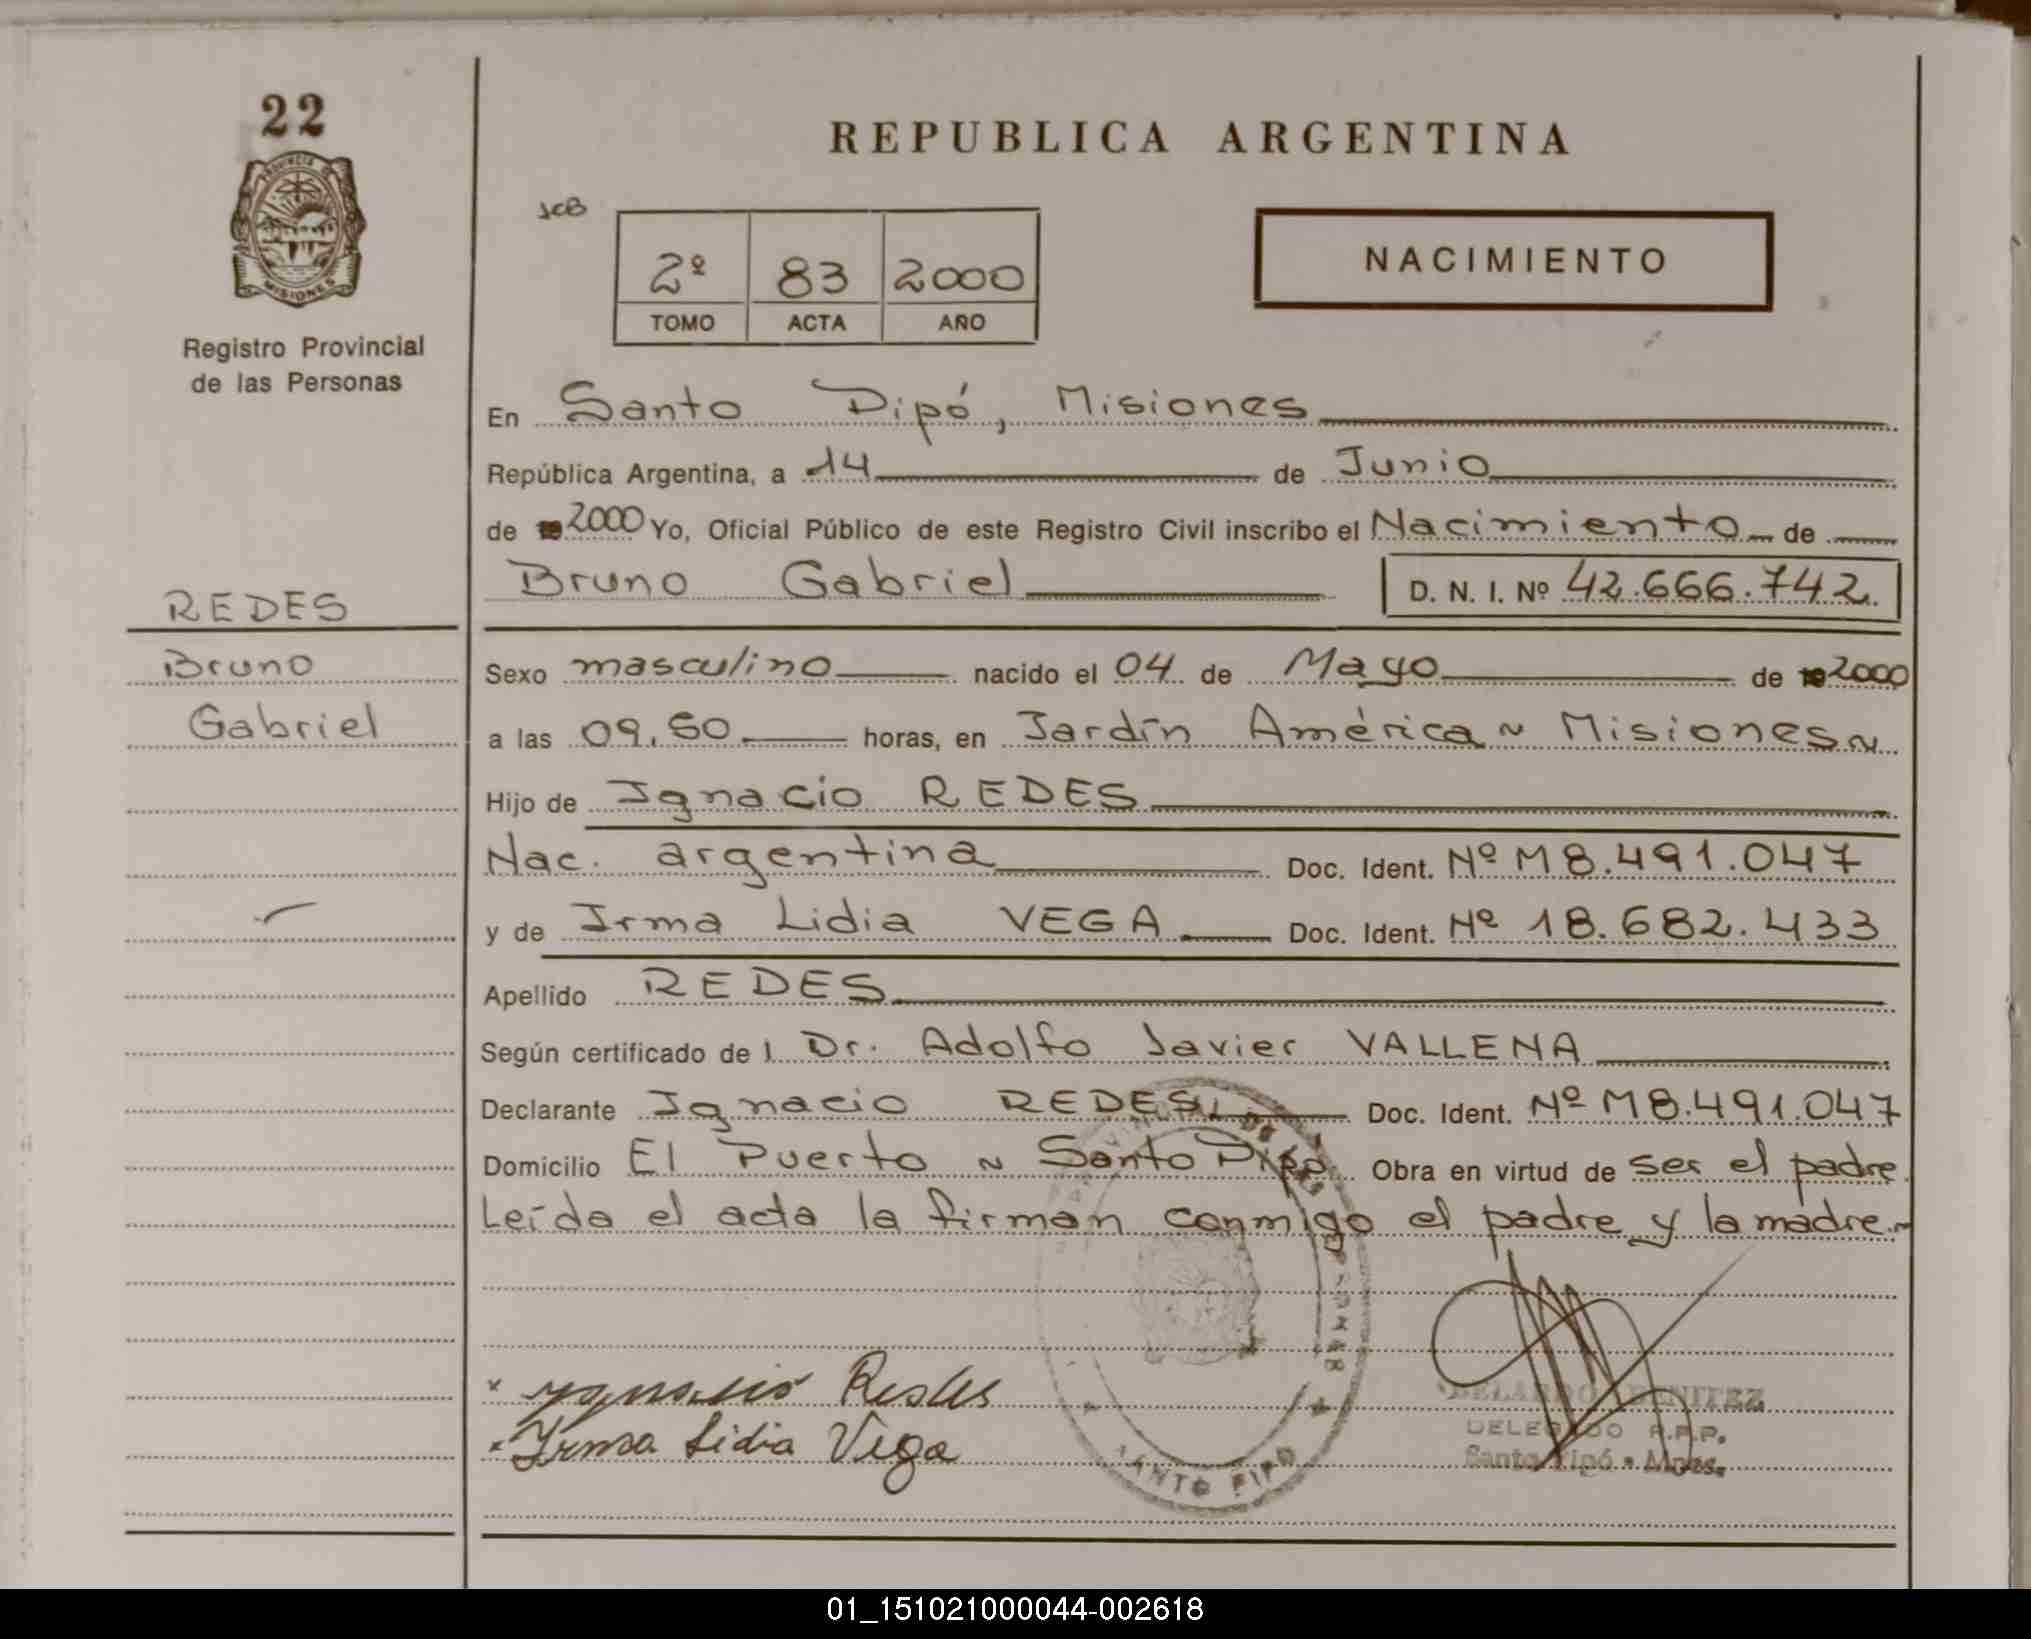 22
PROVINCIA DE
MISIONES
Registro Provincial
de las Personas
REDES
Bruno
Gabriel
REPUBLICA ARGENTINA
JCB
2º 83 2000
TOMO ACTA AÑO
NACIMIENTO
En Santo Pipó, Misiones
República Argentina, a 14 de Junio
de 2000 Yo, Oficial Público de este Registro Civil inscribo el Nacimiento de
Bruno Gabriel D. N. I. Nº 42.666.742
Sexo masculino nacido el 04 de Mayo de 2000
a las 09,50 horas, en Jardín América ~ Misiones ~
Hijo de Ignacio REDES
Nac. argentina Doc. Ident. Nº M8.491.047
y de Irma Lidia VEGA Doc. Ident. Nº 18.682.433
Apellido REDES
Según certificado de l Dr. Adolfo Javier VALLENA
Declarante Ignacio REDES Doc. Ident. Nº M8.491.047
Domicilio El Puerto ~ Santo Pipó Obra en virtud de ser el padre
Leída el acta la firman conmigo el padre y la madre.~
x Ygnasio Redes
x Irma Lidia Vega
SANTO PIPO
BENITEZ
DELEGADO R.P.P.
Santo Pipó - Mnes.
01_151021000044-002618